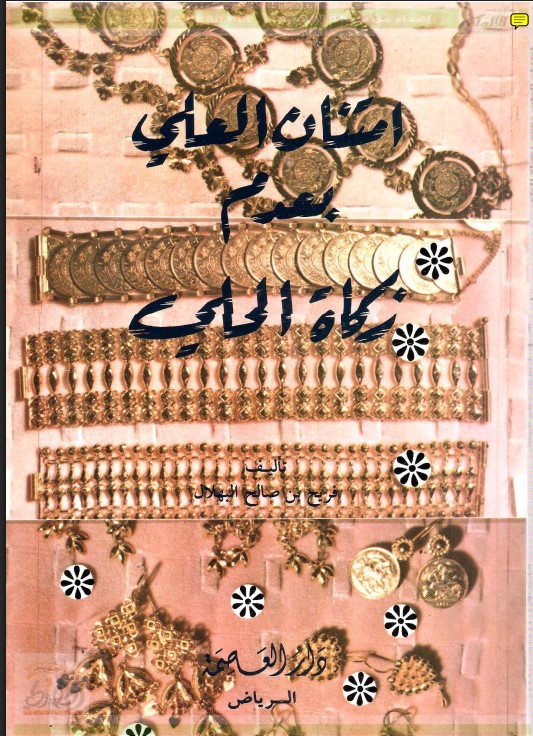 امتنان العلي
بعدم
زكاة الحلي
تأليف
فريح بن صالح البهلال
دار العاصمة
الرياض